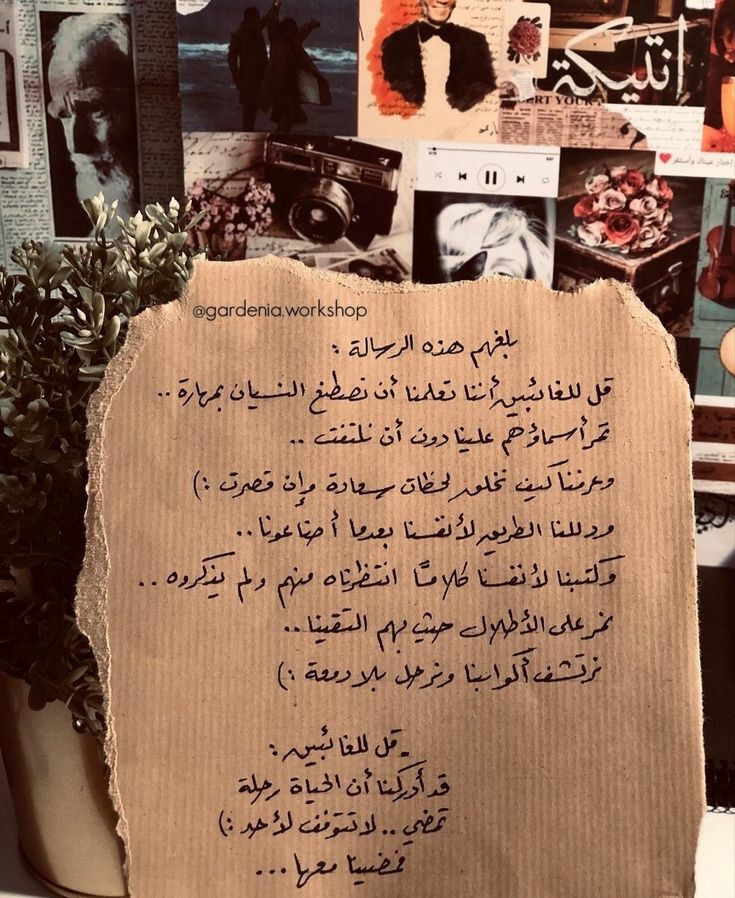 انتيكة
RT YOUR
إختار عيناك وأستقر
@gardenia.workshop
بلغهم هذه الرسالة :
قل للغائبين أننا تعلمنا أن نصطنع النسيان بمهارة ..
تمر أسماؤهم علينا دون أن نلتفت ..
وعرفنا كيف نخلق لحظات سعادة وإن قصرت :)
ودللنا الطريق لأنفسنا بعدما أضاعونا ..
وكتبنا لأنفسنا كلامًا انتظرناه منهم ولم يذكروه ..
نمر على الأطلال حيث بهم التقينا ..
نرتشف أكوابنا ونرحل بلا دمعة :)
- قل للغائبين :
قد أدركنا أن الحياة رحلة
تمضي .. لا تتوقف لأحد :)
فمضينا معها ...